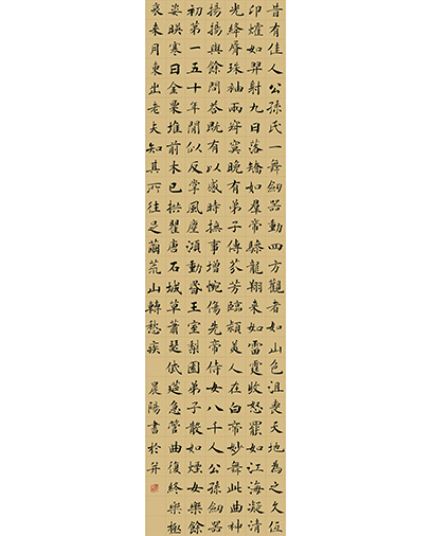 昔有佳人公孫氏一舞劍器動四方觀者如山色沮喪天地為之久低
卬㸌如羿射九日落矯如羣帝驂龍翔來如雷霆收怒罷如江海凝清
光絳脣珠袖兩寂寞晚有弟子傳芬芳臨潁美人在白帝妙舞此曲神
揚揚與餘問答既有以感時撫事增惋傷先帝侍女八千人公孫劍器
初第一五十年間似反掌風塵澒動昏王室梨園弟子散如煙女樂餘
姿映寒日金粟堆前木已拱瞿唐石城草蕭瑟玳筵急管曲復終樂極
哀來月東出老夫知其所往足繭荒山轉愁疾 晨陽書於并